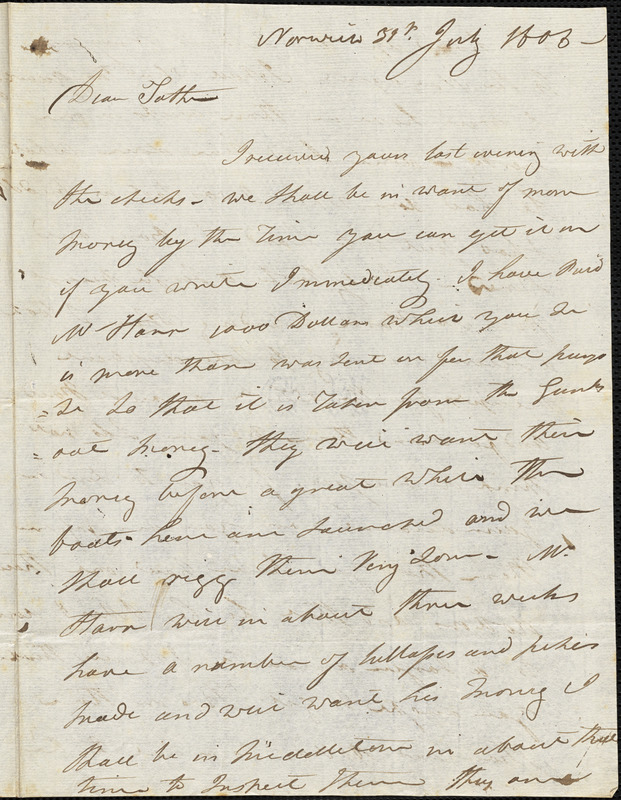 Norwich 31st July 1808 -
Dear Father
I received yours last evening with
the checks - we shall be in want of more
money by the time you can get it on
if you write Immediately. I have Paid
Mr Starr 1000 Dollars which you se
is more than was sent on for that purpo
= se so that it is Taken from the Gunb
= oat money - they will want their
money before a great while the
boats here are launched and we
shall rigg them Very Soon - Mr.
Starr will in about three weeks
have a number of cutlasses and pikes
made and will want his money I
shall be in Middletown in about that
time to Inspect Them they are